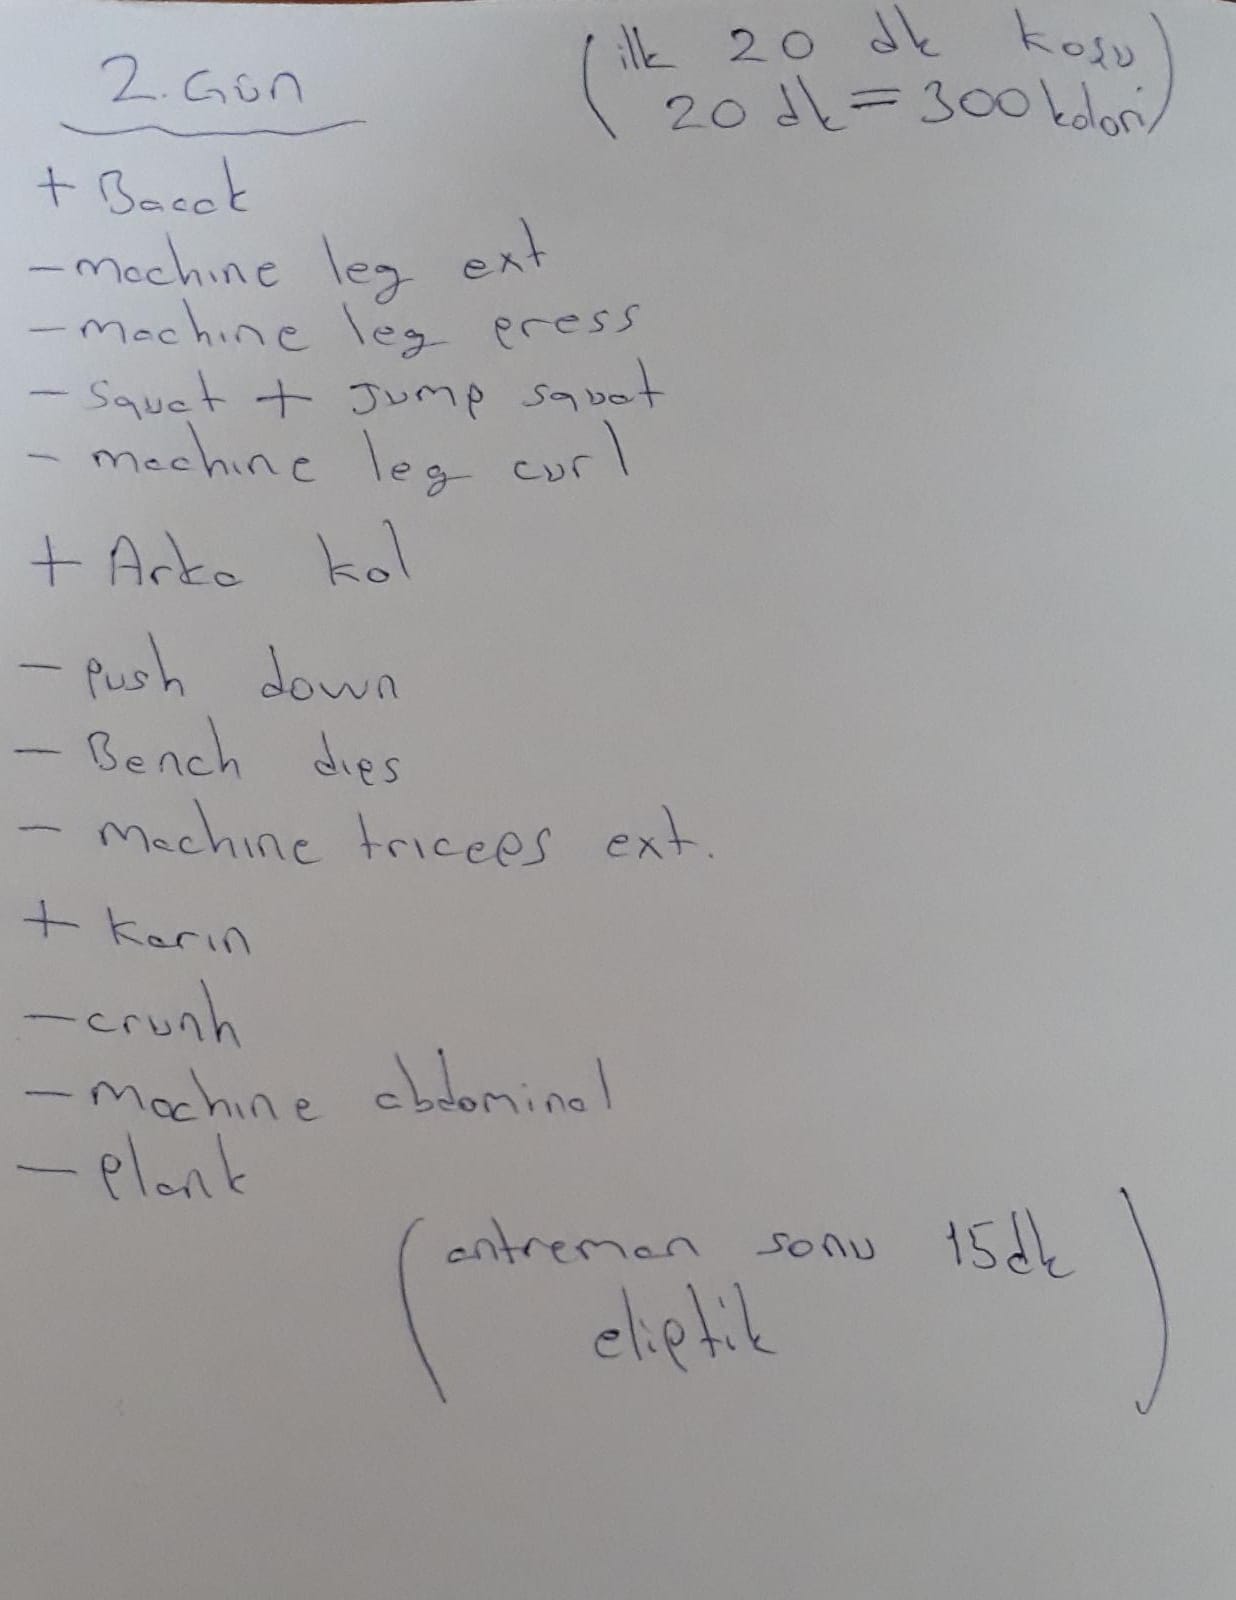 2. Gün
(ilk 20 dk koşu
20 dk = 300 kalori)
+ Bacak
- machine leg ext
- machine leg press
- Squat + Jump squat
- machine leg curl
+ Arka kol
- Push down
- Bench dips
- Machine triceps ext.
+ Karın
- crunh
- Machine abdominal
- Plank
(antreman sonu 15dk
eliptik)